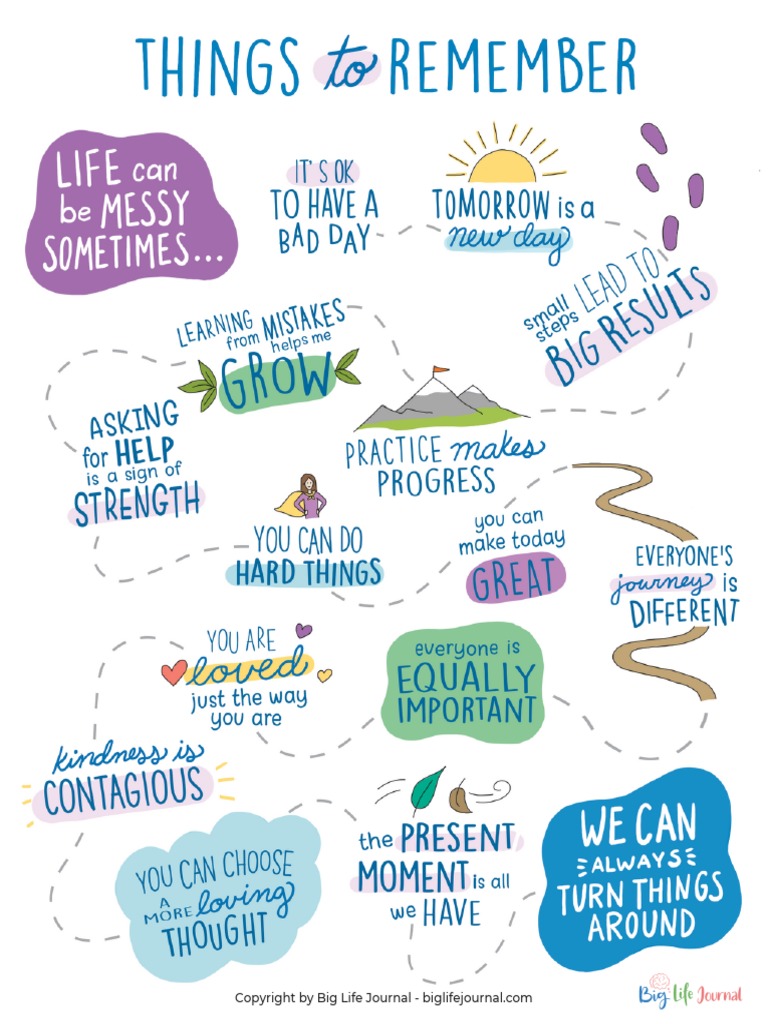 THINGS to REMEMBER
LIFE can
be MESSY
SOMETIMES...
IT'S OK
TO HAVE A
BAD DAY
TOMORROW is a
new day
small
steps LEAD TO
BIG RESULTS
LEARNING
from MISTAKES
helps me
GROW
ASKING
for HELP
is a sign of
STRENGTH
PRACTICE makes
PROGRESS
YOU CAN DO
HARD THINGS
you can
make today
GREAT
EVERYONE'S
journey is
DIFFERENT
YOU ARE
loved
just the way
you are
everyone is
EQUALLY
IMPORTANT
kindness is
CONTAGIOUS
YOU CAN CHOOSE
A
MORE loving
THOUGHT
the PRESENT
MOMENT is all
we HAVE
WE CAN
ALWAYS
TURN THINGS
AROUND
Copyright by Big Life Journal - biglifejournal.com
Big Life Journal